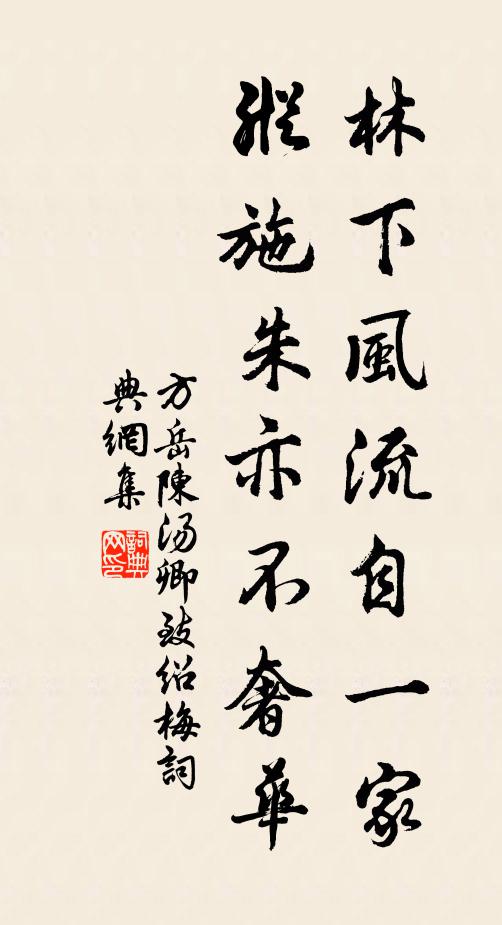 林下風流自一家
縱施朱亦不奢華
方岳陳湯卿致紹梅詞
典網集
詞典网印